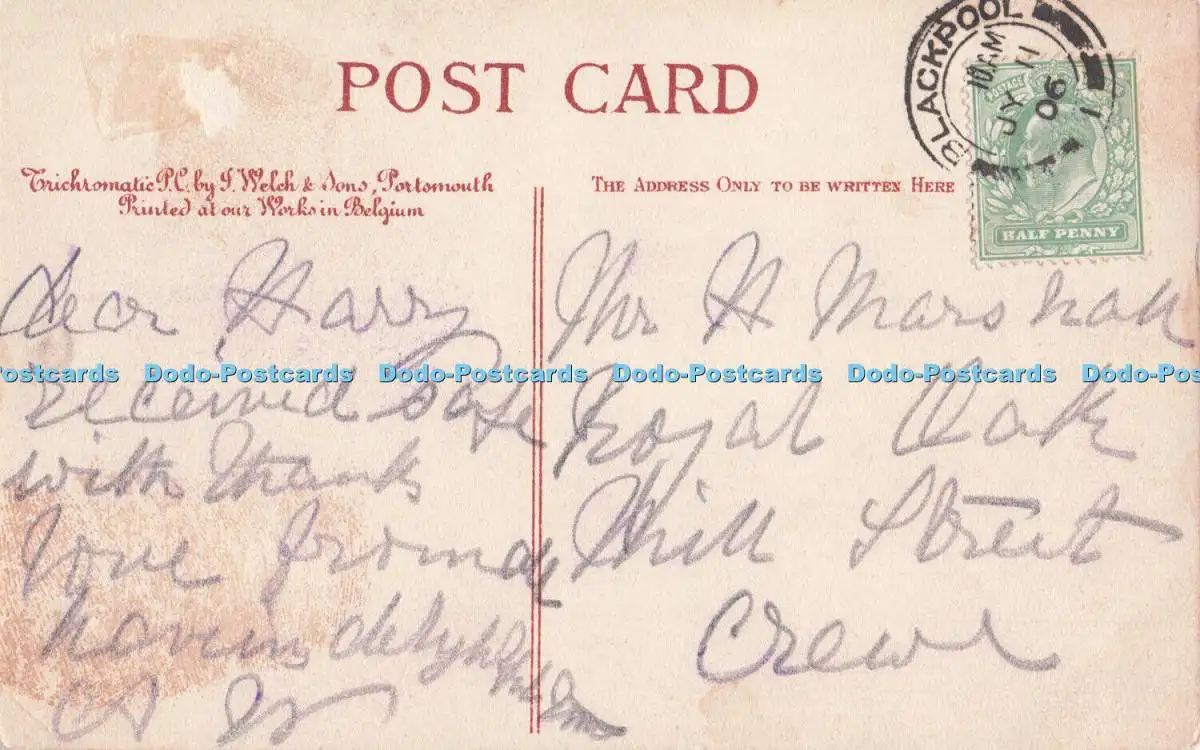 POST CARD
BLACKPOOL
10 AM
JY 11
06
1
POSTAGE
HALF PENNY
Trichromatic P.C. by J. Welch & Sons, Portsmouth
Printed at our Works in Belgium
THE ADDRESS ONLY TO BE WRITTEN HERE
Dear Harry
received safe
with thanks
love from
having delightful
Mr H Marshall
Royal Oak
Mill Street
Crewe
Postcards Dodo-Postcards Dodo-Postcards Dodo-Postcards Dodo-Postcards Dodo-Pos